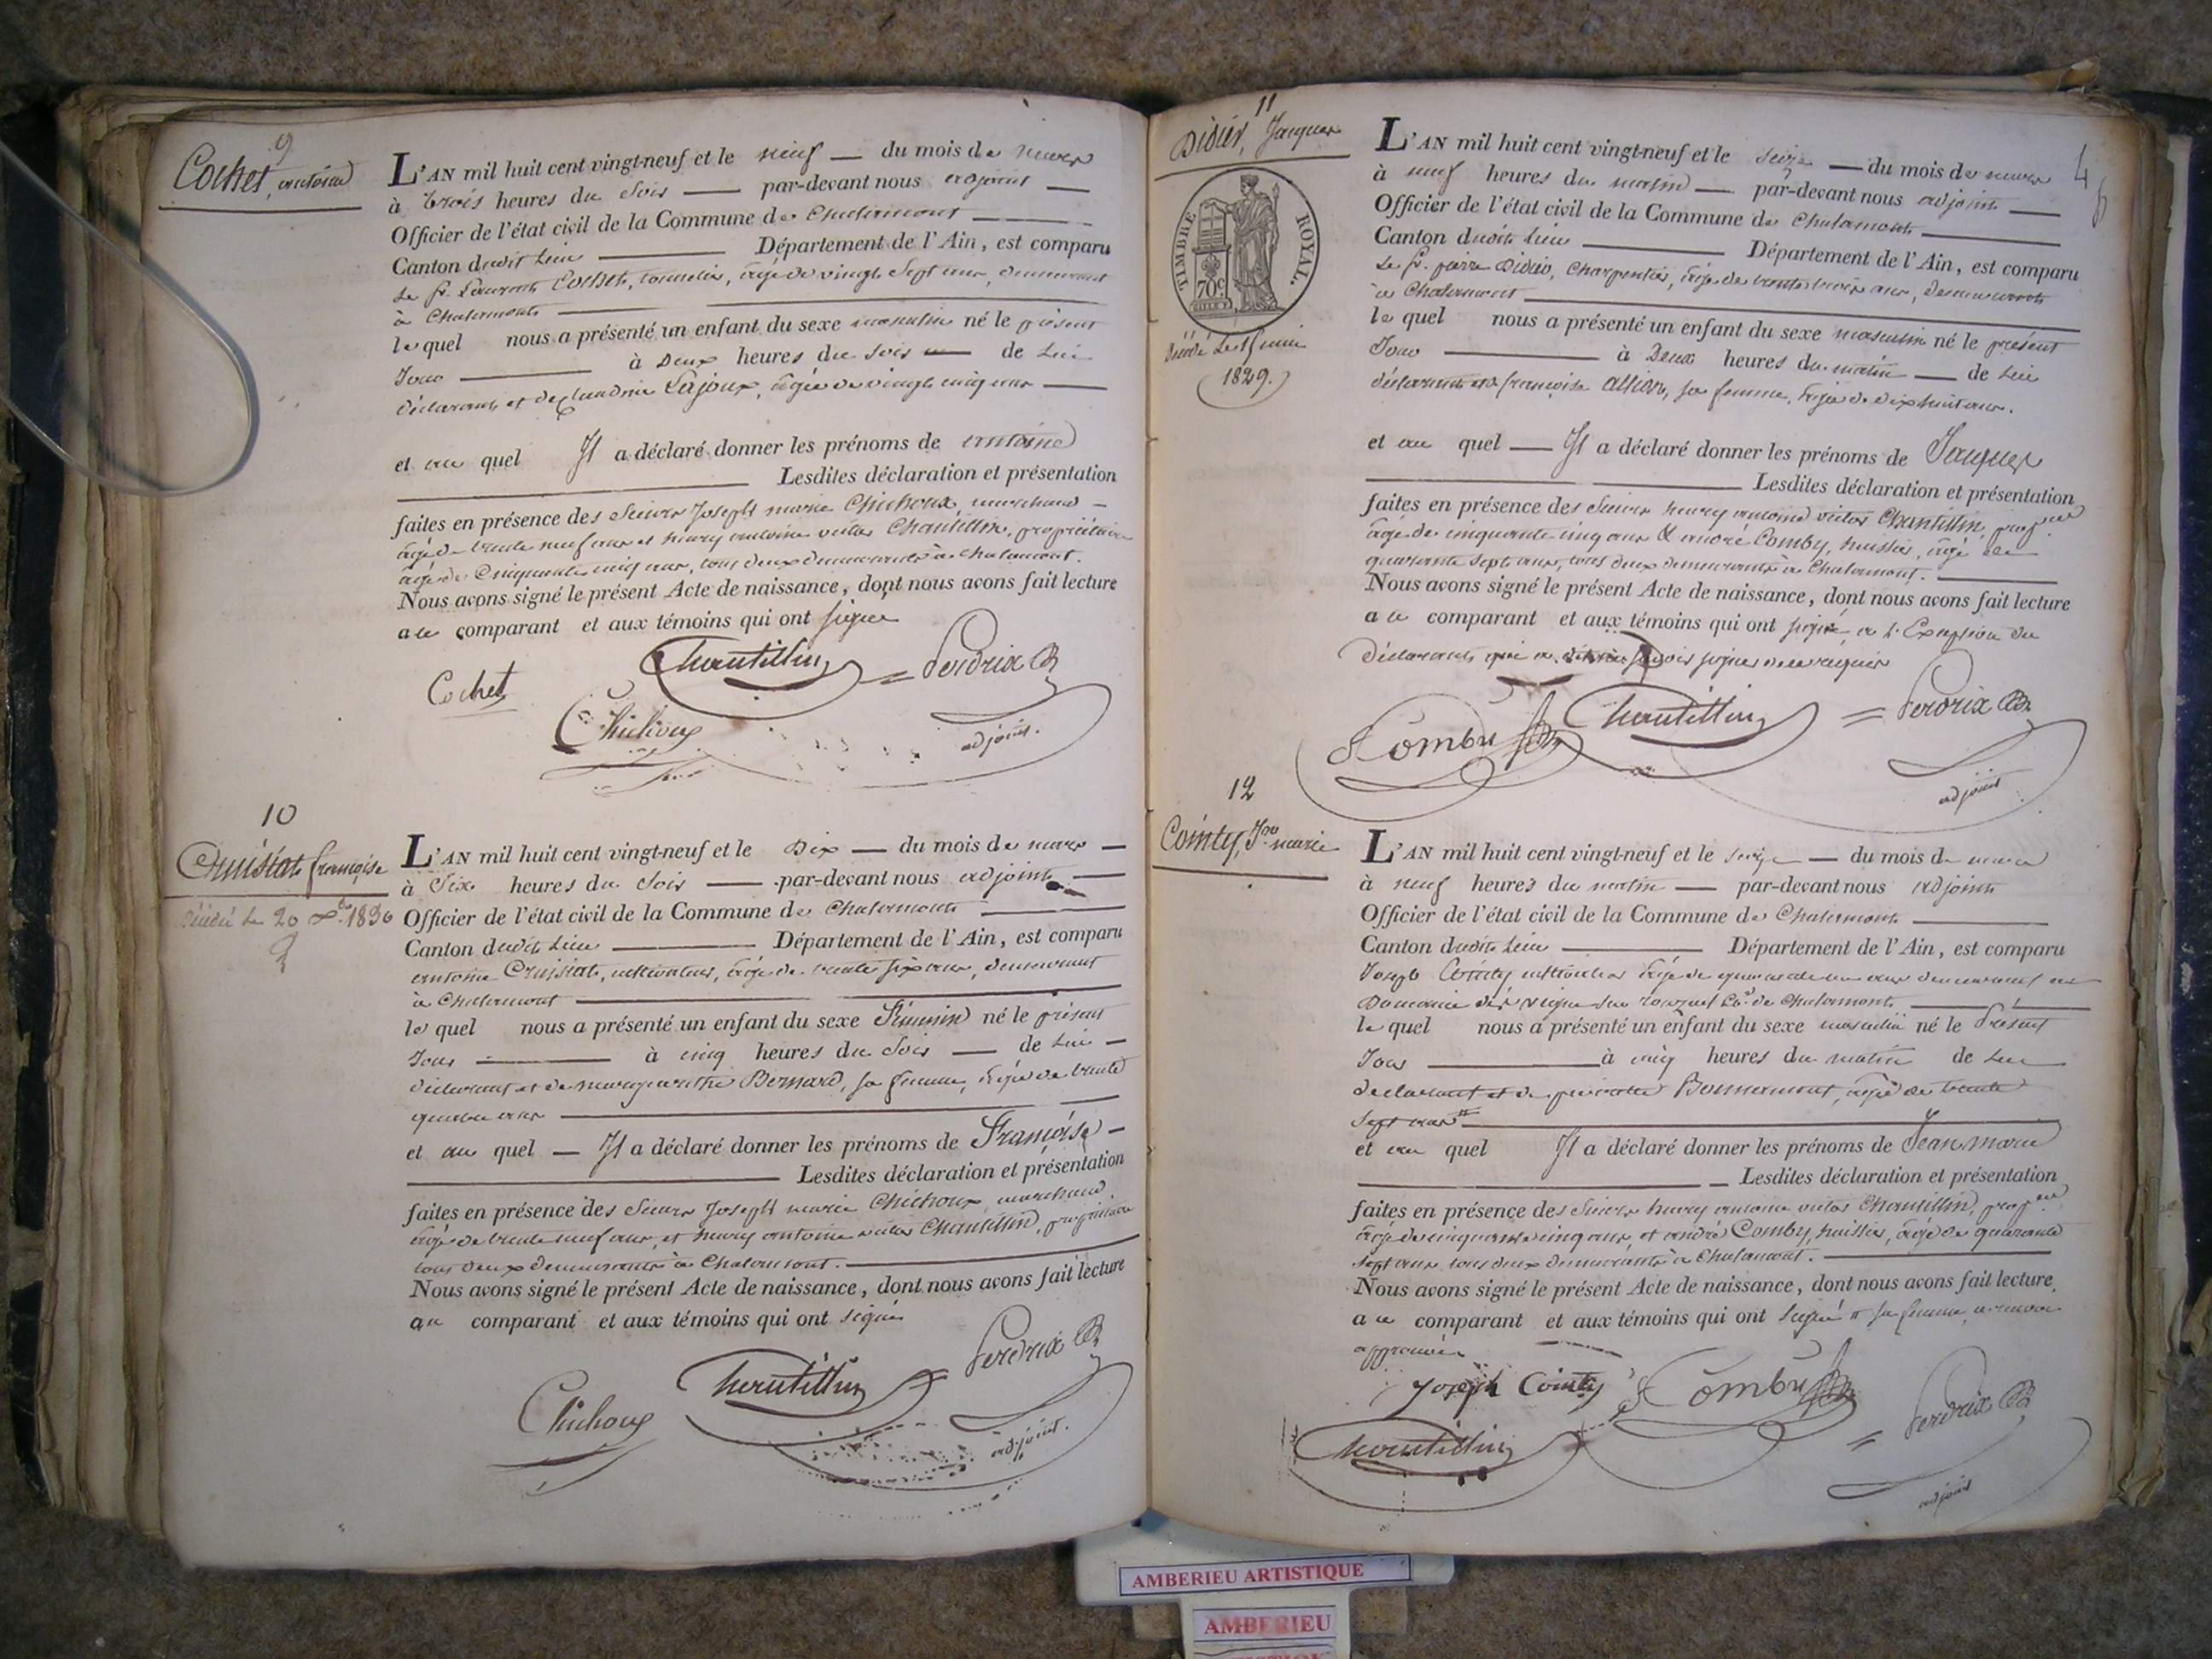 9
Cochet, antoine
L'AN mil huit cent vingt-neuf et le neuf — du mois de mars
à trois heures du soir — par-devant nous adjoint —
Officier de l'état civil de la Commune de Chalamont —
Canton dudit lieu — Département de l'Ain, est comparu
le sr. Laurent Cochet, tonnelier, âgé de vingt sept ans, demeurant
à Chalamont —
lequel nous a présenté un enfant du sexe masculin né le présent
Jour — à Deux heures du soir — de lui
déclarant et de Claudine Lajoux, âgée de vingt cinq ans —
et au quel Il a déclaré donner les prénoms de antoine
— Lesdites déclaration et présentation
faites en présence des Sieurs Joseph marie Chichoux, marchand —
âgé de trente neuf ans et henry antoine victor Chantillin, propriétaire
âgé de Cinquante cinq ans, tous deux demeurants à chalamont.
Nous avons signé le présent Acte de naissance, dont nous avons fait lecture
au comparant et aux témoins qui ont signé
Cochet
Chantillin
Perdrix
Chichoux
adjoint.
10
Cruisiat, françoise
Décédé le 20 1836
L'AN mil huit cent vingt-neuf et le Dix — du mois de mars —
à Six heures du Soir — par-devant nous adjoint —
Officier de l'état civil de la Commune de Chalamont —
Canton dudit lieu — Département de l'Ain, est comparu
antoine Cruisiat, cultivateur, âgé de trente six ans, demeurant
à Chalamont —
lequel nous a présenté un enfant du sexe Féminin né le présent
Jour — à cinq heures du Soir — de lui —
déclarant et de marguerithe Bernard, sa femme, âgée de trente
quatre ans —
et au quel — Il a déclaré donner les prénoms de Françoise —
— Lesdites déclaration et présentation
faites en présence des Sieurs Joseph marie Chichoux, marchand
âgé de trente neuf ans, et henry antoine victor Chantillin, propriétaire
tous deux demeurants à Chalamont. —
Nous avons signé le présent Acte de naissance, dont nous avons fait lecture
au comparant et aux témoins qui ont signé
Perdrix
Chantillin
Chichoux
adjoint.
11
Didier, Jacques
TIMBRE ROYAL.
70c
Décédé Le 15 juin
1829.
4
L'AN mil huit cent vingt-neuf et le seize — du mois de mars
à neuf heures du matin — par-devant nous adjoint —
Officier de l'état civil de la Commune de Chalamont —
Canton dudit lieu — Département de l'Ain, est comparu
le sr. pierre Didier, Charpentier, âgé de trente trois ans, demeurant
à Chalamont —
lequel nous a présenté un enfant du sexe masculin né le présent
Jour — à Deux heures du matin — de lui
déclarant et de françoise allion, sa femme, âgée de dix huit ans.
et au quel — Il a déclaré donner les prénoms de Jacques
— Lesdites déclaration et présentation
faites en présence des Sieurs henry antoine victor Chantillin, propre
âgé de cinquante cinq ans & andré Comby, huissier, âgé de
quarante sept ans, tous deux demeurants à Chalamont. —
Nous avons signé le présent Acte de naissance, dont nous avons fait lecture
au comparant et aux témoins qui ont signé, à l'Exception du
Déclarant qui a savoir signer de ce requis
Comby
Chantillin
Perdrix
adjoint
12
Cointy, Jn marie
L'AN mil huit cent vingt-neuf et le seize — du mois de mars
à neuf heures du matin — par-devant nous adjoint
Officier de l'état civil de la Commune de Chalamont —
Canton dudit lieu — Département de l'Ain, est comparu
Joseph Cointy cultivateur âgé de quarante un ans demeurant au
Domaine de vigne sur de Chalamont —
lequel nous a présenté un enfant du sexe masculin né le Présent
Jour — à cinq heures du matin de lui
déclarant et de pierrette Bonnamour, âgée de trente
sept ans —
et au quel Il a déclaré donner les prénoms de Jean marie
— Lesdites déclaration et présentation
faites en présence des Sieurs henry antoine victor Chantillin, propre
âgé de cinquante cinq ans, et andré Comby, huissier, âgé de quarante
sept ans, tous deux demeurants à Chalamont. —
Nous avons signé le présent Acte de naissance, dont nous avons fait lecture
au comparant et aux témoins qui ont signé sa femme, renvoi
approuvé
Joseph Cointy
Comby
Perdrix
Chantillin
adjoint
AMBERIEU ARTISTIQUE
AMBERIEU